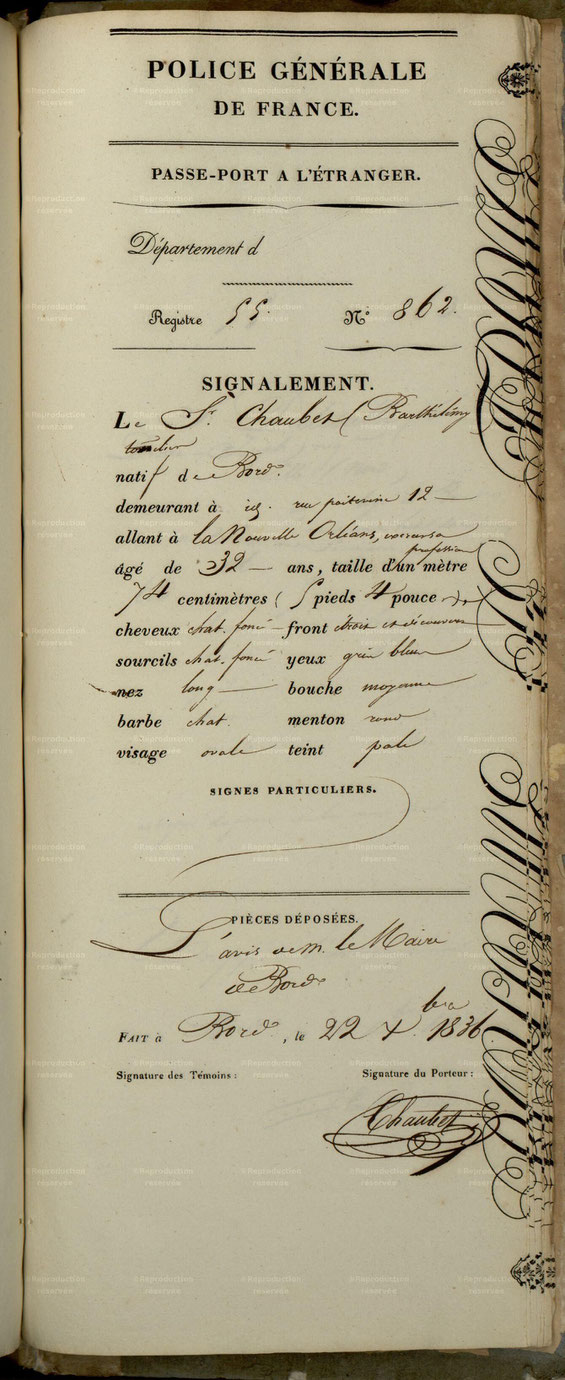 POLICE GÉNÉRALE
DE FRANCE.
PASSE-PORT A L'ÉTRANGER.
Département d
Registre 55. N° 862.
SIGNALEMENT.
Le Sr. Chaubet (Barthélémy
tonnelier
natif de Bordx.
demeurant à ici. rue poitevine 12
allant à la Nouvelle Orléans, exercer sa
profession
âgé de 32 ans, taille d'un mètre
74 centimètres (5 pieds 4 pouces)
cheveux chat. foncé front étroit et découvert
sourcils chat. foncé yeux gris bleu
nez long bouche moyenne
barbe chat. menton rond
visage ovale teint pale
SIGNES PARTICULIERS.
PIÈCES DÉPOSÉES.
L'avis de M. le Maire
de Bordx
FAIT à Bordx, le 22 Xbre 1836
Signature des Témoins : Signature du Porteur :
Chaubet
©Reproduction réservée